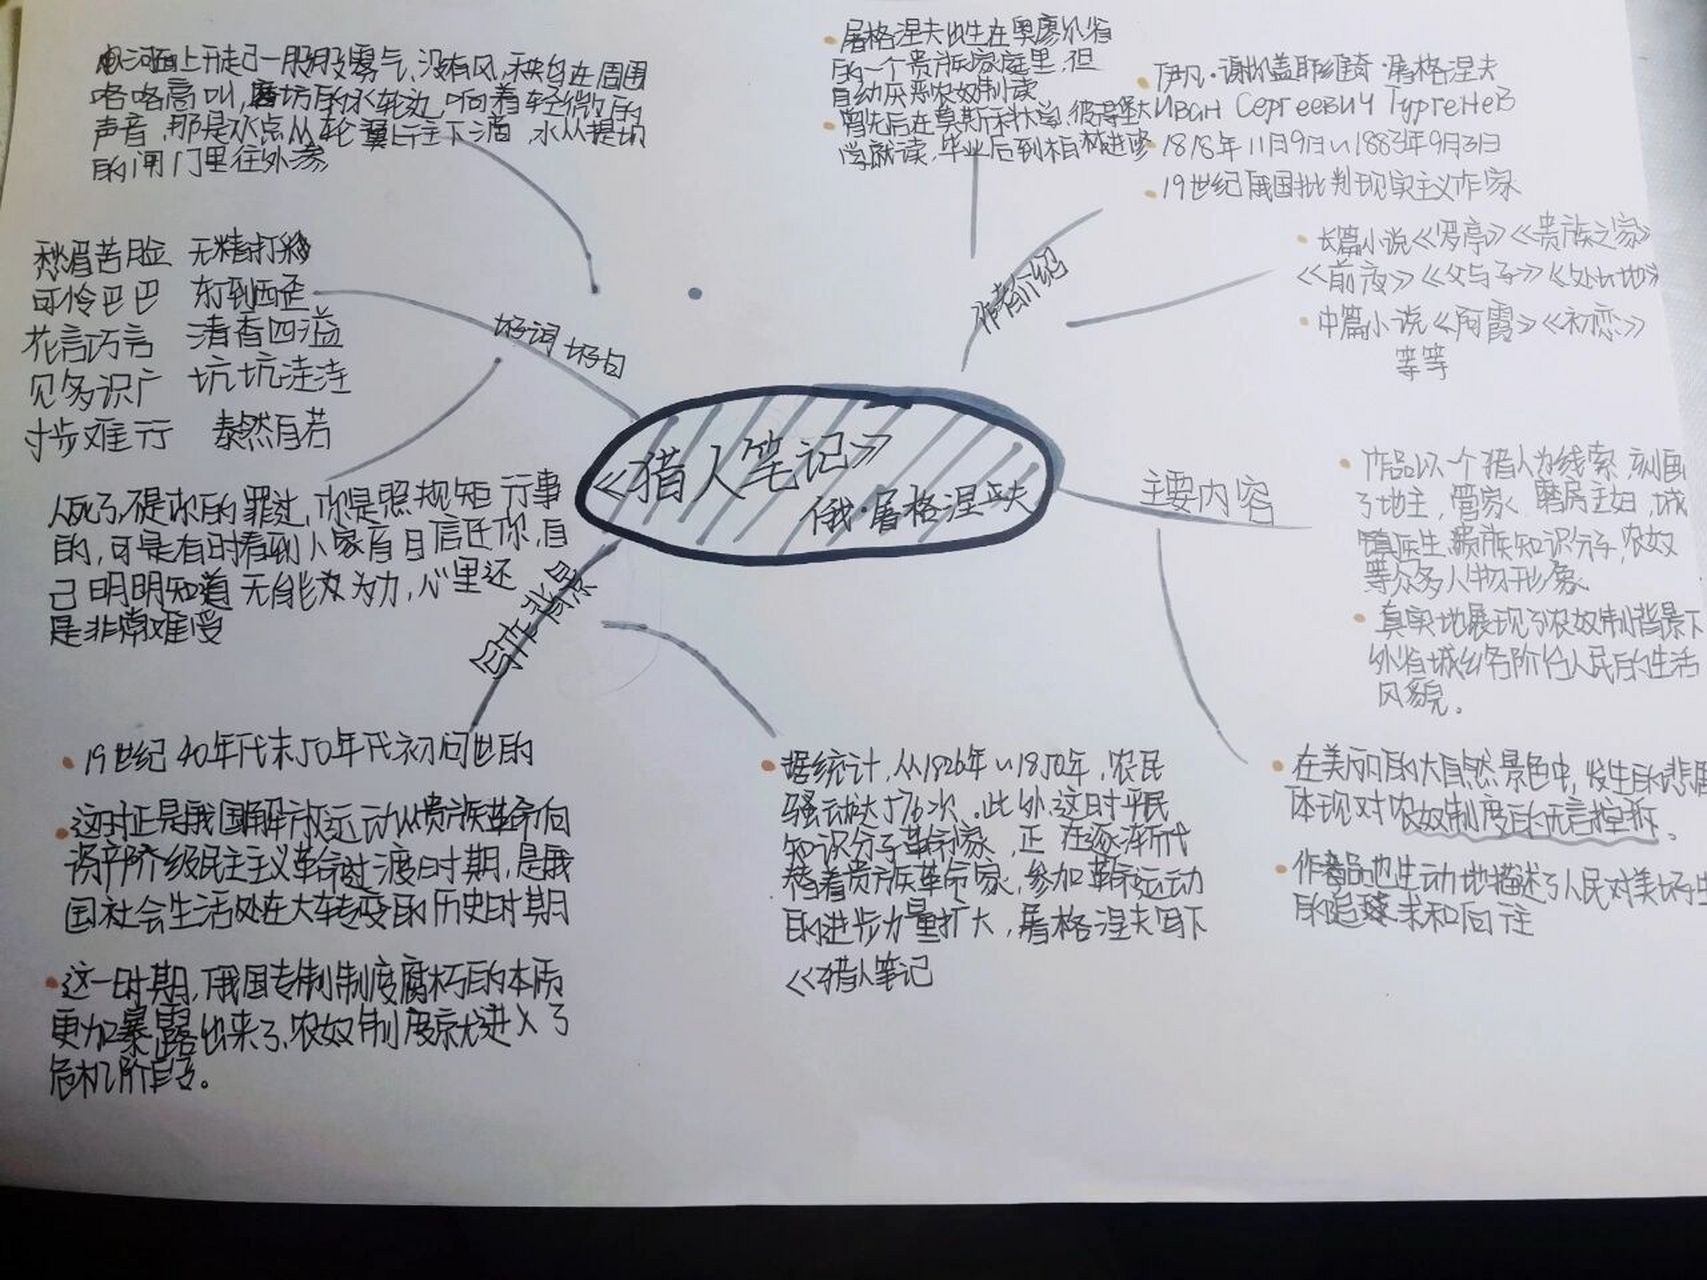 《猎人笔记》
俄·屠格涅夫
作者介绍
屠格涅夫出生在奥廖尔省
的一个贵族家庭里,但
自幼厌恶农奴制度
曾先后在莫斯科大学,彼得堡大
学就读,毕业后到柏林进修
伊凡·谢尔盖耶维奇·屠格涅夫
Иван Сергеевич Тургенев
1818年11月9日~1883年9月3日
19世纪俄国批判现实主义作家
长篇小说《罗亭》《贵族之家》
《前夜》《父与子》《处女地》
中篇小说《阿霞》《初恋》
等等
主要内容
作品以一个猎人为线索,刻画
了地主,管家,磨房主妇,城
镇医生,贵族知识分子,农奴
等众多人物形象
真实地展现了农奴制背景下
外省城乡各阶层人民的生活
风貌。
在美丽的大自然景色中,发生的悲剧
体现对农奴制度的无言控诉。
作者品也生动地描述了人民对美好生
的追求和向往
写作背景
19世纪40年代末50年代初问世的
这时正是俄国解放运动从贵族革命向
资产阶级民主主义革命过渡时期,是俄
国社会生活处在大转变的历史时期
这一时期,俄国专制制度腐朽的本质
更加暴露出来了,农奴制度就进入了
危机阶段。
据统计,从1826年~1850年,农民
骚动达576次。此外,这时平民
知识分子革命家,正在逐渐代
替着贵族革命家,参加革命运动
的进步力量扩大,屠格涅夫写下
《猎人笔记
好词好句
河面上升起一股股雾气,没有风,秧鸟在周围
咯咯高叫,磨坊的水轮边,响着轻微的
声音,那是水点从轮翼上往下滴,水从堤坝
的闸门里往外渗
愁眉苦脸 无精打采
可怜巴巴 东倒西歪
花言巧言 清香四溢
见多识广 坑坑洼洼
寸步难行 泰然自若
人死了,不是你的罪过,你是照规矩行事
的,可是有时看到人家盲目信任你,自
己明明知道无能为力,心里还
是非常难受